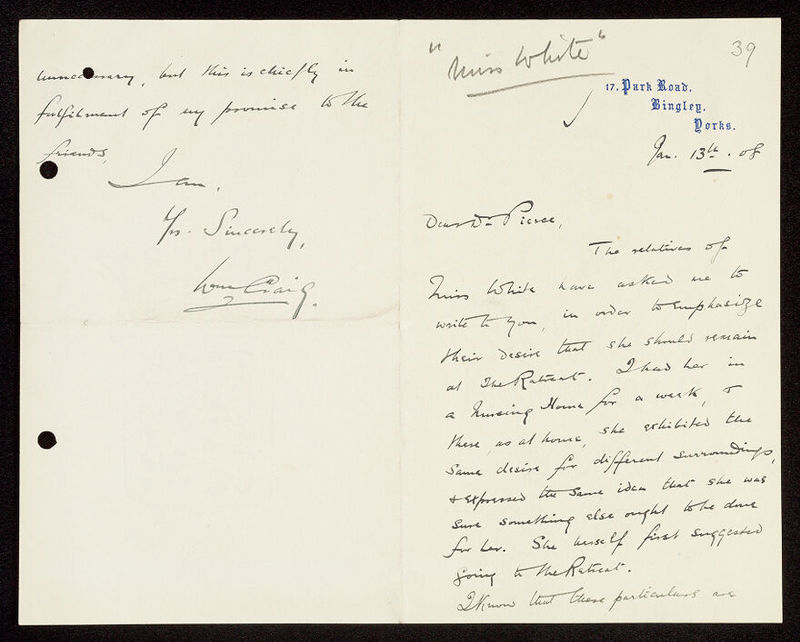 "Miss White"
39
17, Park Road,
Bingley,
Yorks.
Jan. 13th. 08
Dear Dr Pierce,
The relatives of
Miss White have asked me to
write to you, in order to emphasize
their desire that she should remain
at The Retreat. I had her in
a Nursing Home for a week, &
there, as at home, she exhibited the
same desire for different surroundings,
& expressed the same idea that she was
sure something else ought to be done
for her. She herself first suggested
going to the Retreat.
I know that these particulars are
unnecessary, but this is chiefly in
fulfilment of my promise to the
friends.
I am,
Yrs. Sincerely,
Wm Craig.